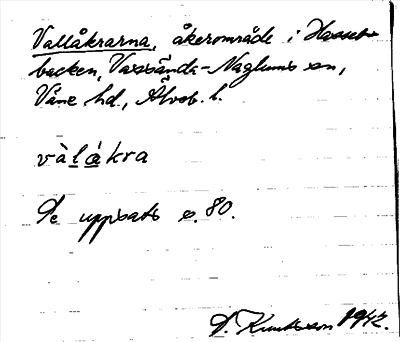 Vallåkrarna, åkerområde i
backen, Vassända-Naglums sn,
Väne hd., Älvsb. l.
vàlákra
Se uppsats s. 80.
D. Knutsson 1942.